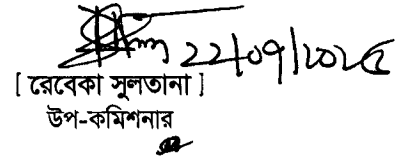 ২২/০৭/২০২৫
[ রেবেকা সুলতানা ]
উপ-কমিশনার